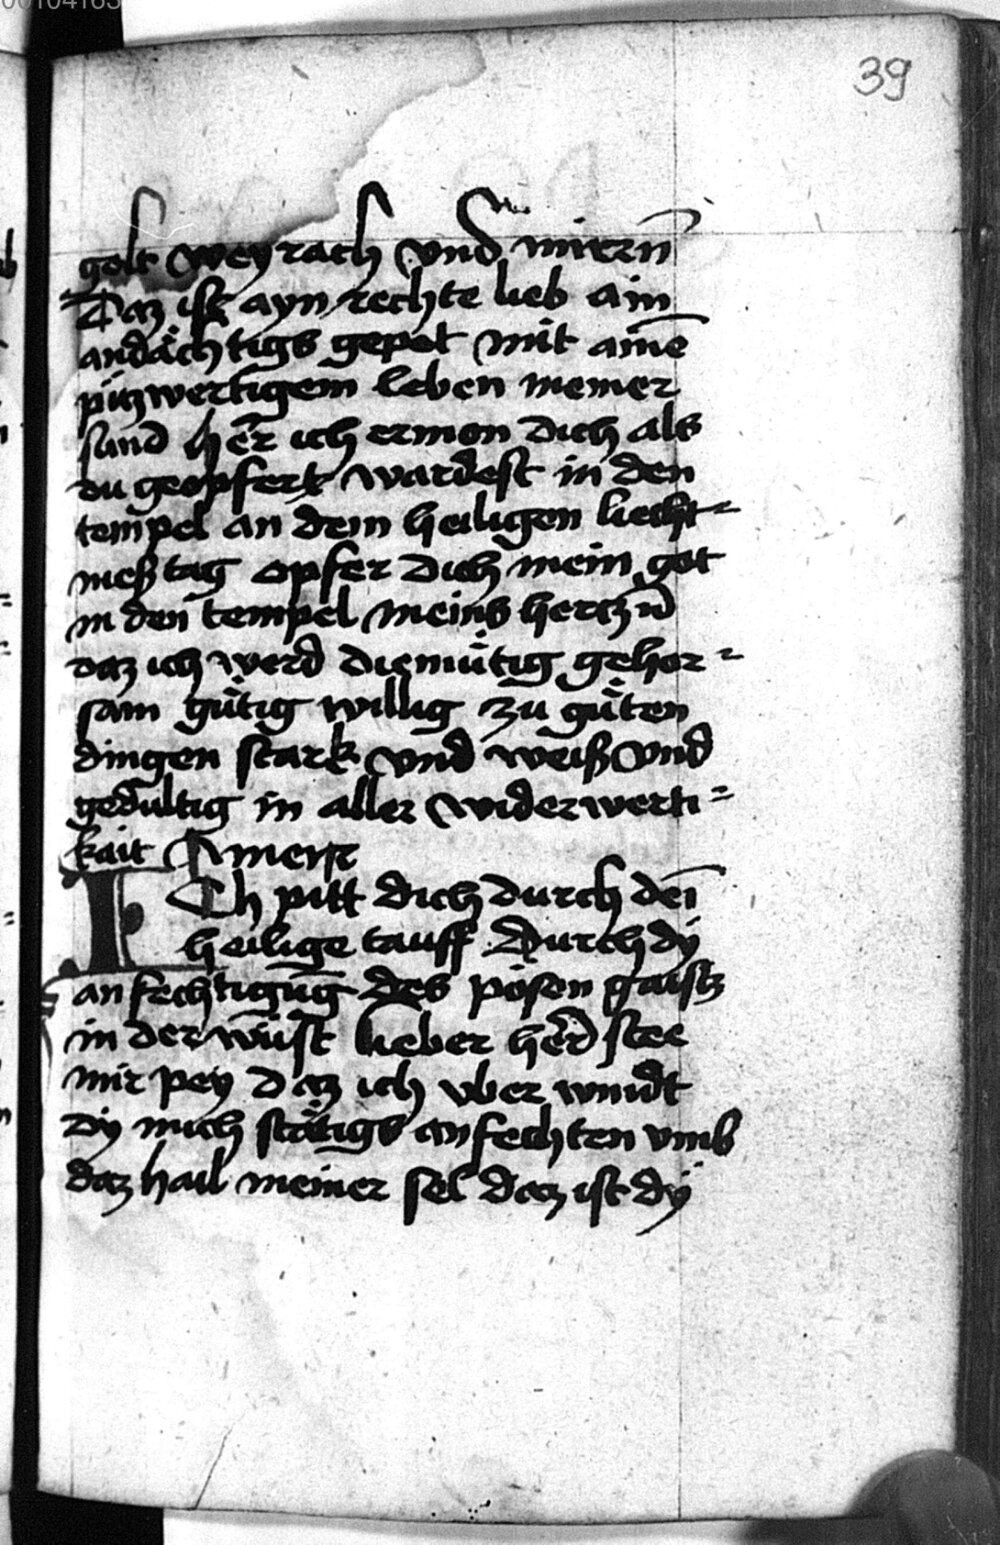 00104163
39
golt weyrach vnd mirrn̄
Daz ist ayn rechte lieb ain
andächtigs gepet mit amē
piczwertigem leben meiner
sund her̄ ich ermon dich als
du geopfert wardest in den
tempel an dem heiligen liecht=
meß tag opfer dich mein got
in den tempel meins hertzn̄
daz ich werd diemütig gehor=
sam gütig willig zu güten
dingen stark vnd weiß vnd
gedultig in aller widerwerti=
kait Amen
ICh pitt dich durch dei̅
heilige tauff Durch dy
anfechtigūg des pösen gaistz
in der wüst lieber her̄ stee
mir pey daz ich vber windt
dy mich stätigs anfechten vmb
daz hail meiner sel daz ist dy